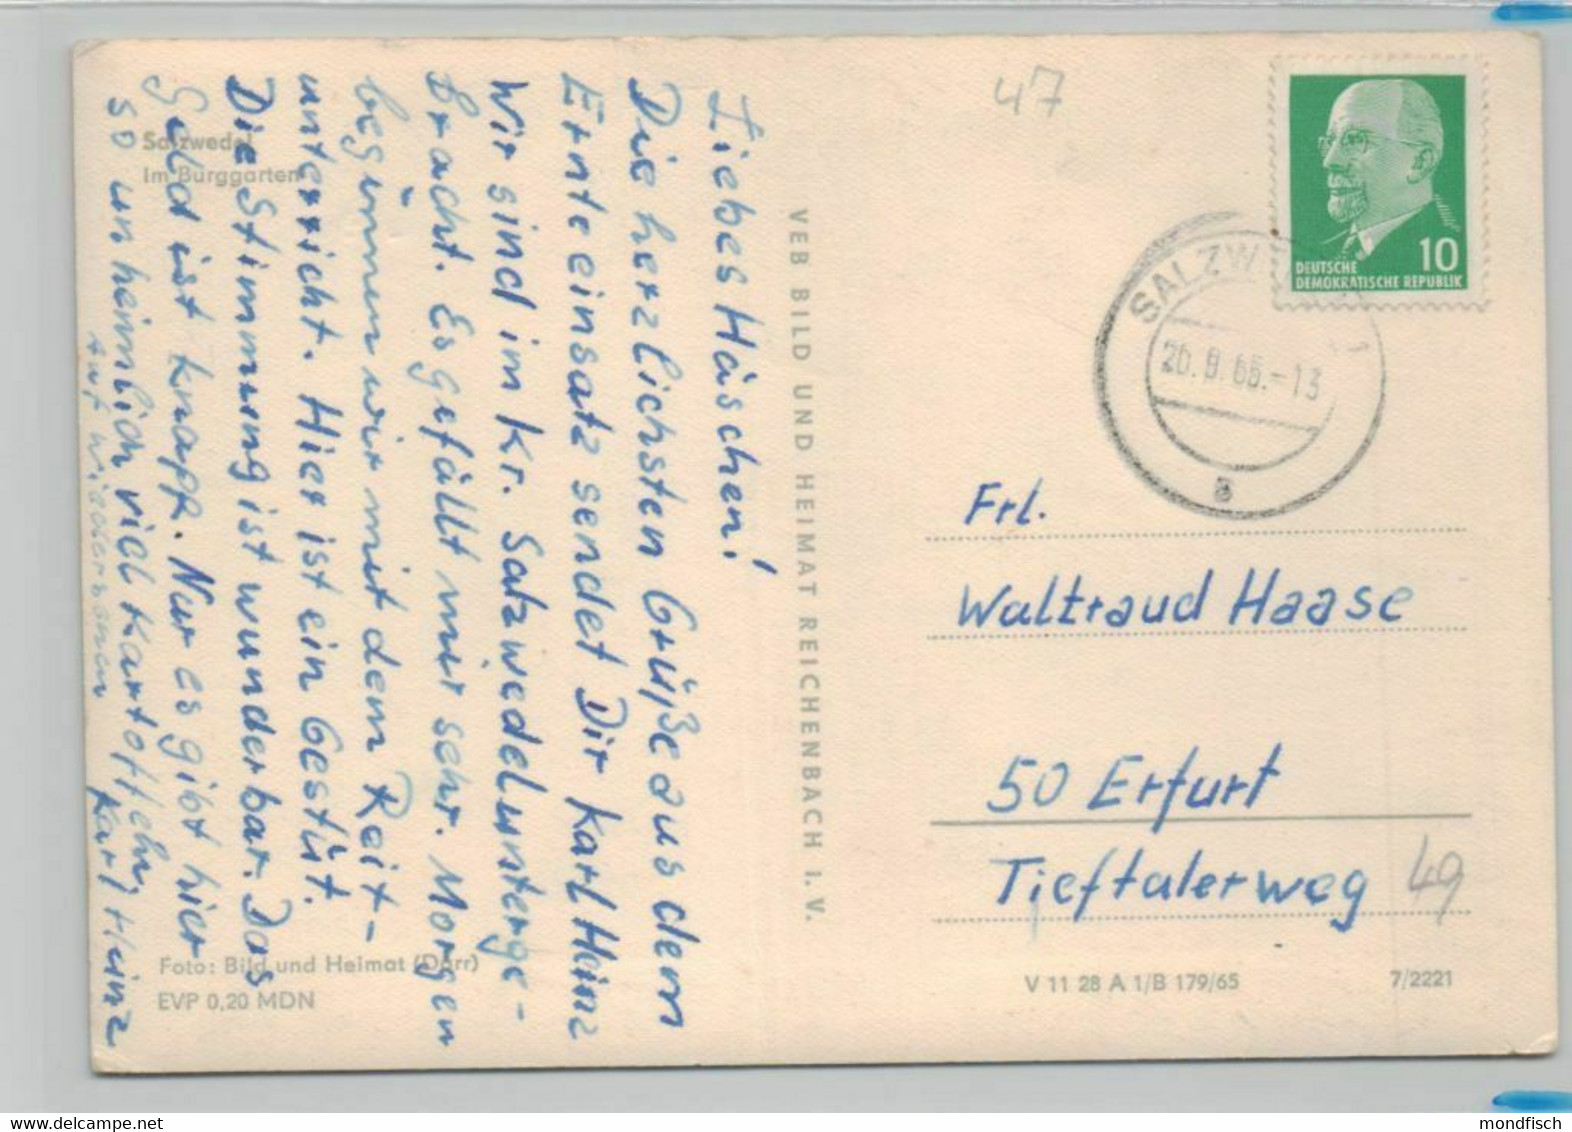 Salzwedel
Im Burggarten
Liebes Häschen!
Die herzlichsten Grüße aus dem
Ernteeinsatz sendet Dir Karl Heinz
Wir sind im Kr. Salzwedel unterge-
bracht. Es gefällt mir sehr. Morgen
beginnen wir mit dem Reit-
unterricht. Hier ist ein Gestüt.
Die Stimmung ist wunderbar. Das
Geld ist knapp. Nur es gibt hier
so unheimlich viel Kartoffeln,
Auf Wiedersehen Karl Heinz
Foto: Bild und Heimat (Dörr)
EVP 0,20 MDN
VEB BILD UND HEIMAT REICHENBACH I. V.
47
10
DEUTSCHE
DEMOKRATISCHE REPUBLIK
SALZW
1
.65.-13
a
Frl.
Waltraud Haase
50 Erfurt
Tieftalerweg 49
V 11 28 A 1/B 179/65 7/2221
mondfisch